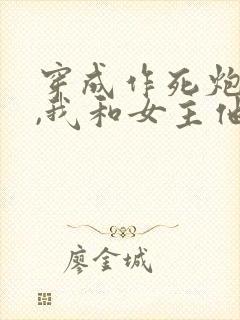 穿成作死炮
,我和女主他
廖金城